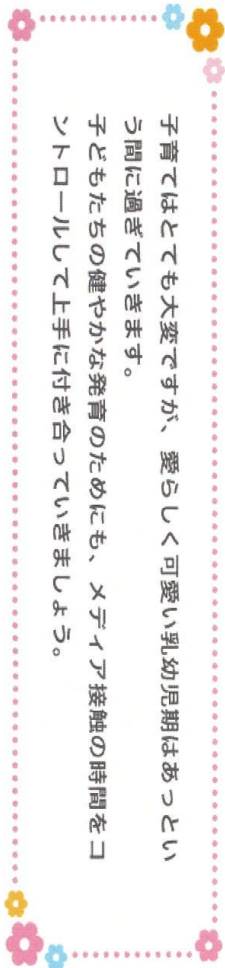 子育てはとても大変ですが、愛らしく可愛い乳幼児期はあっとい
う間に過ぎていきます。
子どもたちの健やかな発育のためにも、メディア接触の時間をコ
ントロールして上手に付き合っていきましょう。